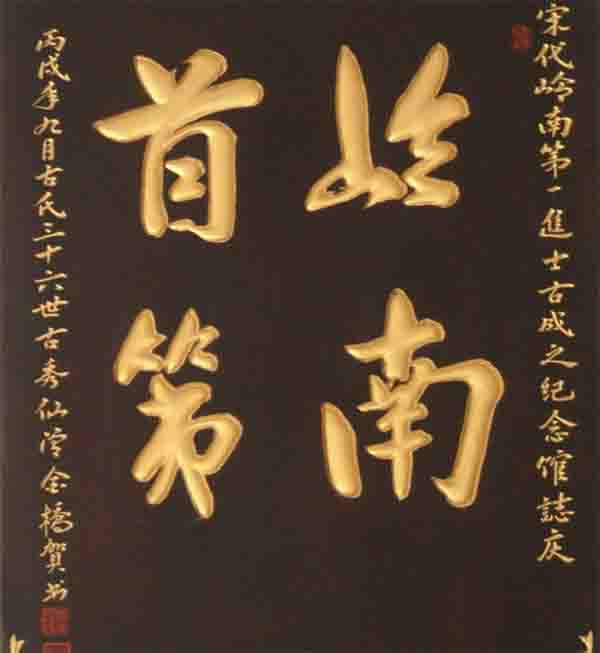 宋代岭南第一進士古成之纪念馆誌庆
岭南
首第
丙戌年九月古氏三十六世古秀仙金橋賀